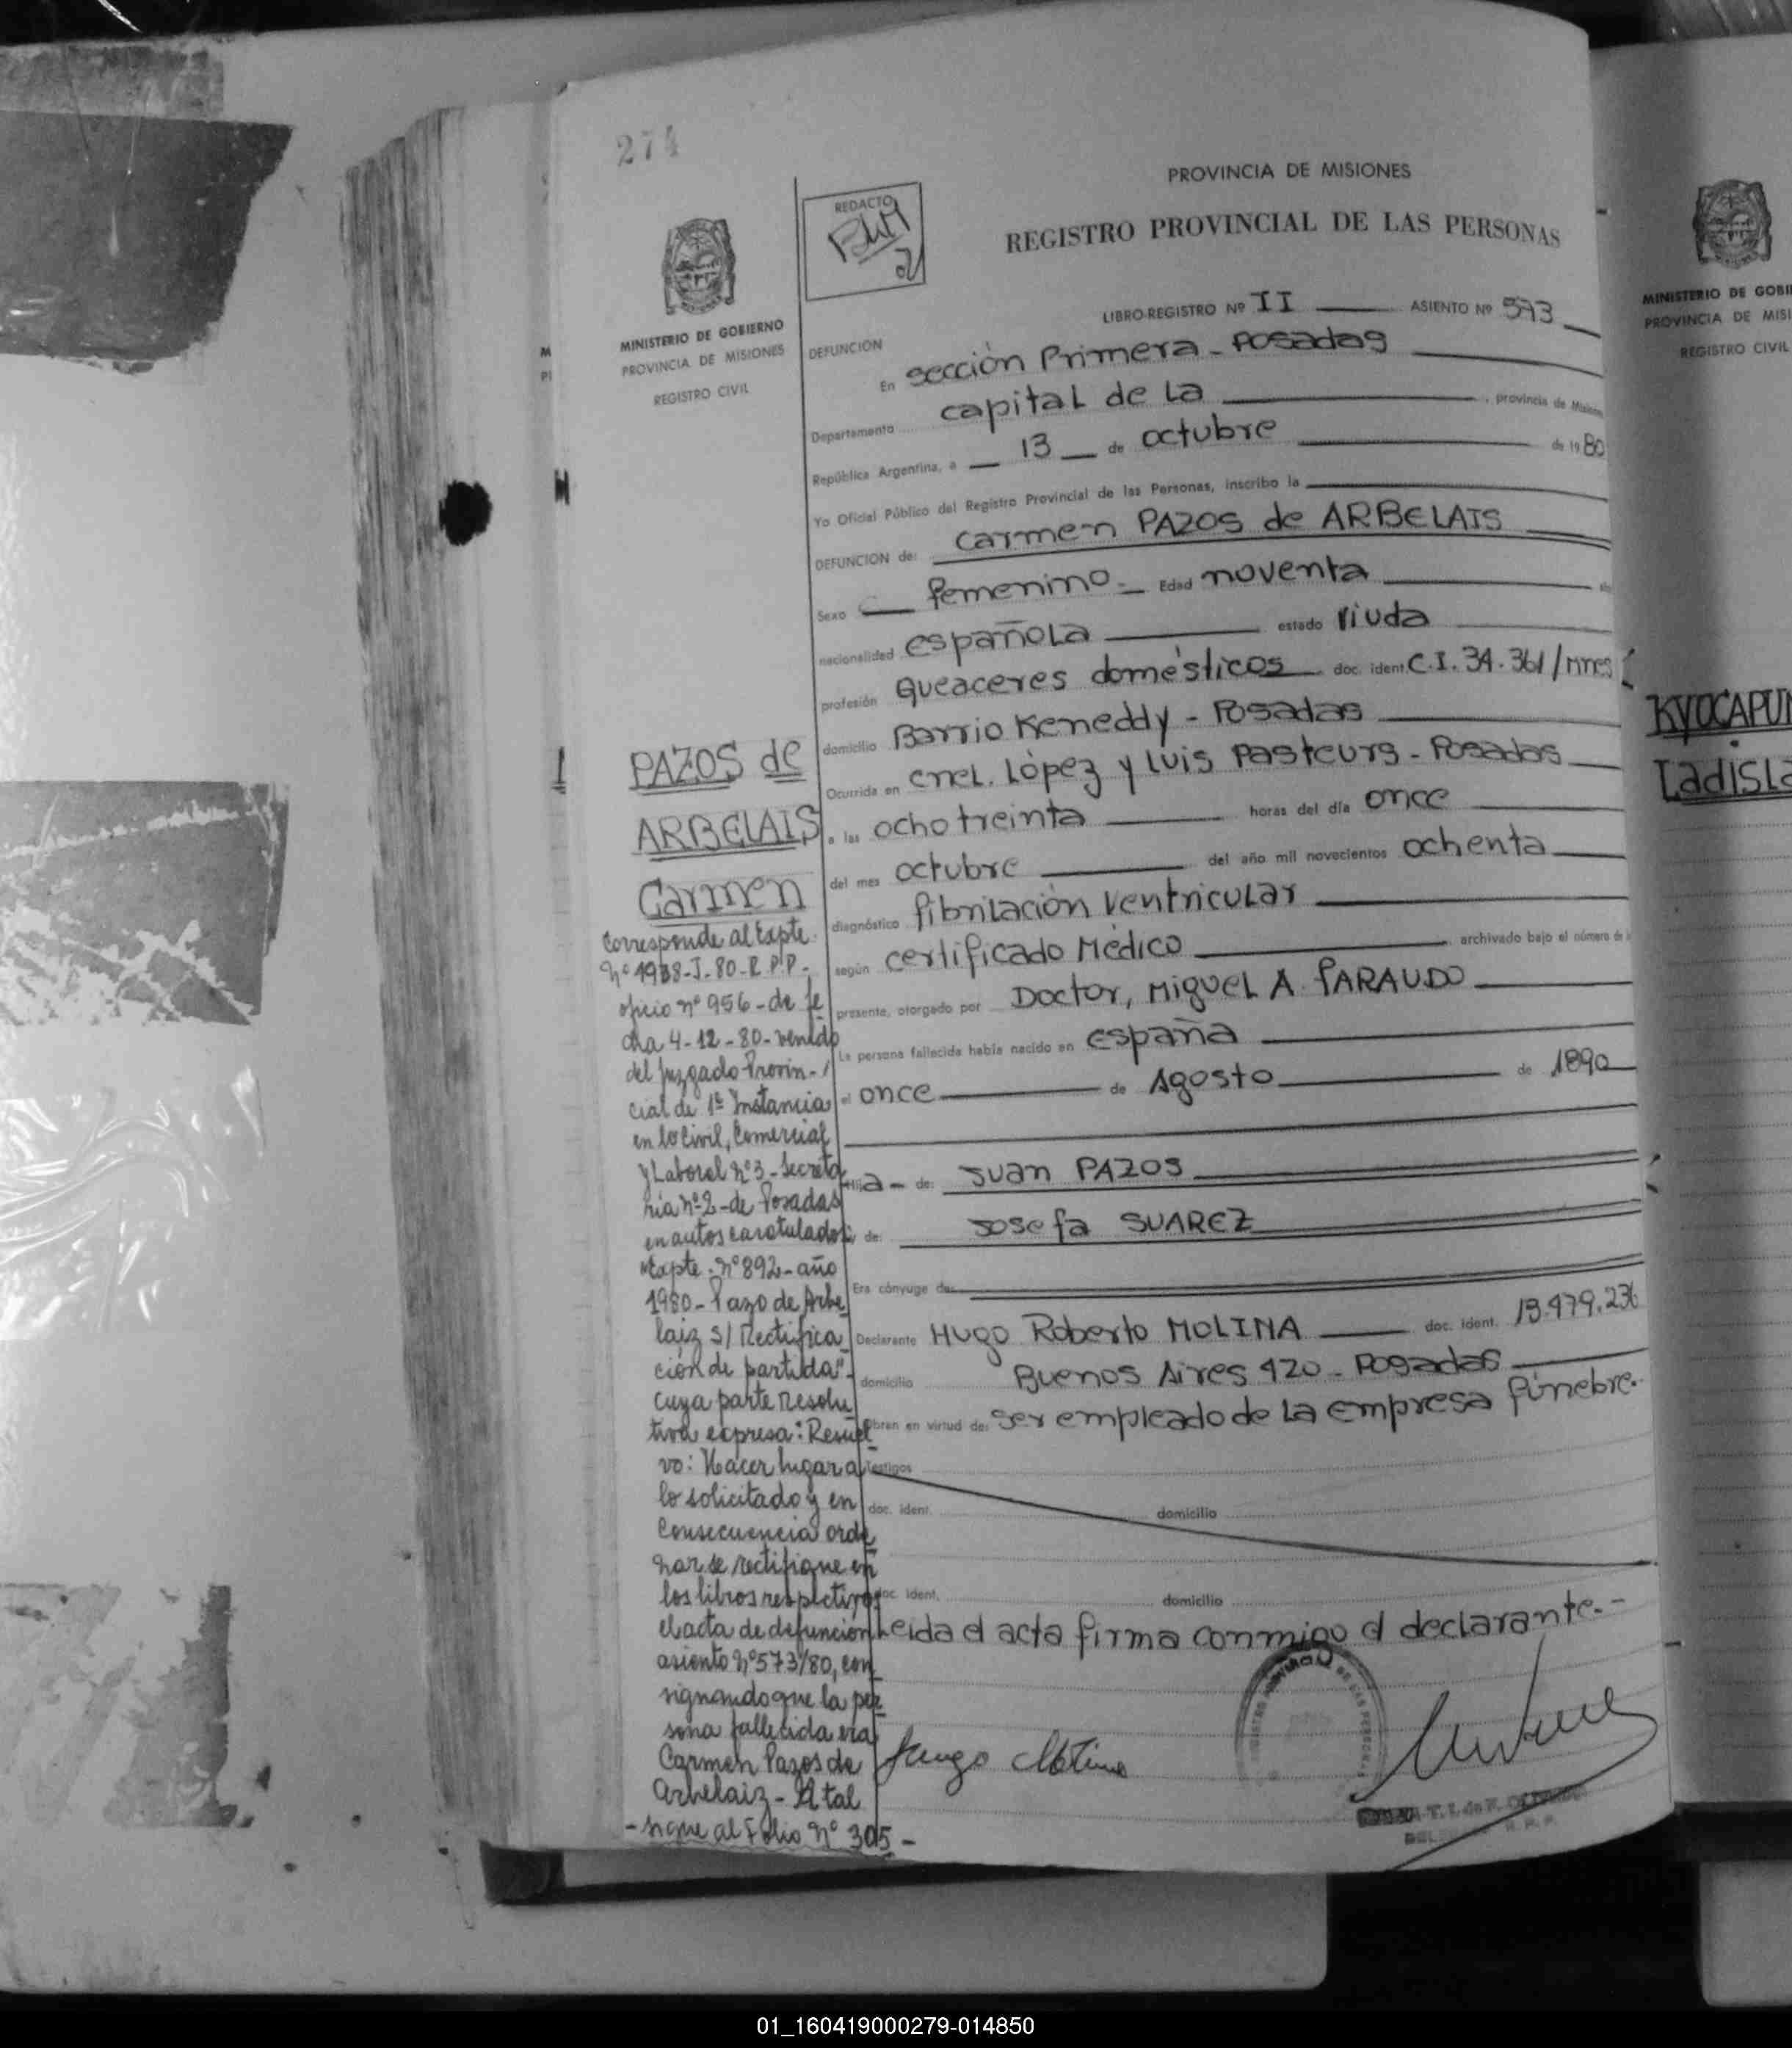 274
PROVINCIA DE MISIONES
REGISTRO PROVINCIAL DE LAS PERSONAS
REDACTO
MINISTERIO DE GOBIERNO
PROVINCIA DE MISIONES
REGISTRO CIVIL
LIBRO-REGISTRO Nº II ASIENTO Nº 573
DEFUNCIÓN
En sección Primera - Posadas
Departamento capital de la , provincia de Misiones
República Argentina, a 13 de octubre de 1980
Yo Oficial Público del Registro Provincial de las Personas, inscribo la
DEFUNCION de: Carmen PAZOS de ARBELAIS
Sexo femenino - Edad noventa
nacionalidad española estado viuda
profesión Queaceres domésticos doc. ident. C.I. 34.361/Mnes
domicilio Barrio Keneddy - Posadas
Ocurrida en Cnel. López y Luis Pasteurs - Posadas
a las ocho treinta horas del día once
del mes octubre del año mil novecientos ochenta
diagnóstico fibrilación ventricular
según certificado Médico archivado bajo el número de
presente, otorgado por Doctor, Miguel A. PARAUDO
La persona fallecida había nacido en España
el once de Agosto de 1890
Hija - de: Juan PAZOS
de: Josefa SUAREZ
Era cónyuge de:
Declarante Hugo Roberto MOLINA doc. ident. 13.479.236
domicilio Buenos Aires 420 - Posadas
Obran en virtud de: ser empleado de la empresa fúnebre.
Testigos
doc. ident. domicilio
doc. ident. domicilio
Leída el acta firma conmigo el declarante.-
Hugo Molina
PAZOS de
ARBELAIS
Carmen
Corresponde al Expte.
Nº 1938-J-80-R.P.P.-
oficio nº 956 - de fe
cha 4-12-80- venido
del Juzgado Provin-
cial de 1ª Instancia
en lo Civil, Comercial
y Laboral nº 3 - Secreta
ria nº 2 - de Posadas
en autos caratulados:
"Expte. nº 892 - año
1980 - Pazo de Arbe
laiz s/ Rectifica
ción de partida"-
cuya parte resolu
tiva expresa: Resuel
vo: Hacer lugar a
lo solicitado y en
consecuencia orde
nar se rectifique en
los libros respectivos
el acta de defunción
asiento nº 573/80, con
signando que la per
sona fallecida era
Carmen Pazos de
Arbelaiz - A tal
- sigue al Folio nº 305 -
MINISTERIO DE GOBI
PROVINCIA DE MISI
REGISTRO CIVIL
KYOCAPUN
Ladisla
01_160419000279-014850